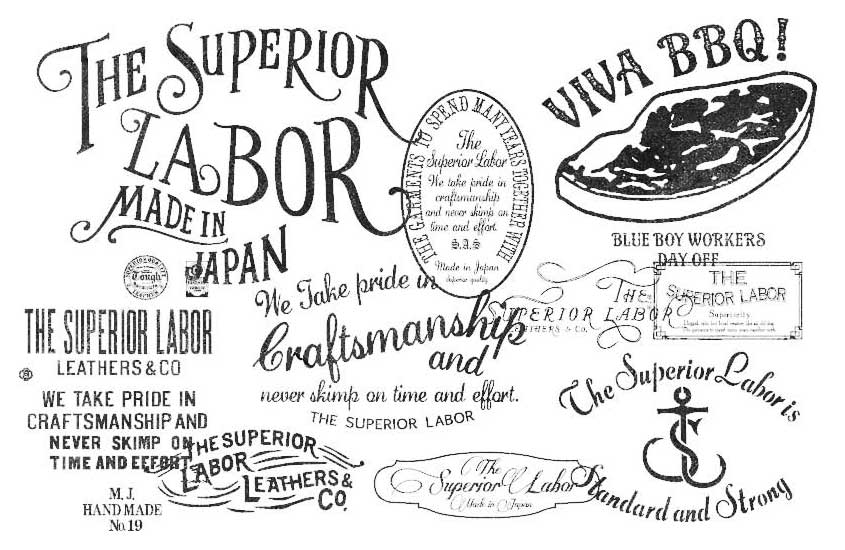 THE SUPERIOR
LABOR
MADE IN
JAPAN
VIVA BBQ!
BLUE BOY WORKERS
DAY OFF
THE GARMENTS TO SPEND MANY YEARS TOGETHER WITH
The
Superior Labor
We take pride in
craftsmanship
and never skimp on
time and effort.
S.A.S
Made in Japan
Superior quality
SUPERIOR QUALITY
Tough
We Take pride in
Craftsmanship
and
never skimp on time and effort.
THE SUPERIOR LABOR
THE
SUPERIOR LABOR
LEATHERS & Co.
THE
SUPERIOR LABOR
Superiority
THE SUPERIOR LABOR
LEATHERS & CO
WE TAKE PRIDE IN
CRAFTSMANSHIP AND
NEVER SKIMP ON
TIME AND EFFORT
THE SUPERIOR
LABOR
LEATHERS &
CO.
M. J.
HAND MADE
No. 19
The
Superior Labor
Made in Japan
The Superior Labor is
Standard and Strong